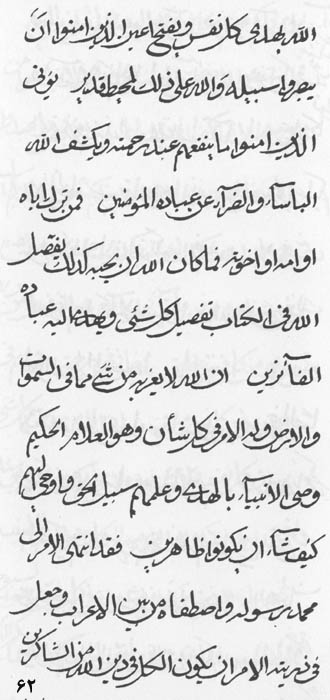 الله بهدى كل نفس ويفتح اعين الذين امنوا ان
يبصروا سبيله والله على ذلك لمحيط قدير يوتى
الذين امنوا ما ينفعهم عند رحمته ويكشف الله
الباساء والضراء عن عباده المؤمنين فمن برك اباه
او امه او اخوته فما كان الله ان يحبه كذلك يفصل
الله فى الكتاب تفصيل كل شئى ويهدى اليه عباده
الفائزين ان الله لا يعزب من شئ مما فى السموات
والارض وله الامر فى كل شأن وهو العلام الحكيم
وصى الانبياء بالهدى وعلمهم سبيل الحق واوحى اليهم
كيف شاء ان يكونوا ظاهرين فقد انتهى الامر الى
محمد رسوله واصطفاه من بين الاعراب وجعل
فى ذريته الامر ان يكون الكل فى دين الله من الشاكرين
۶۲